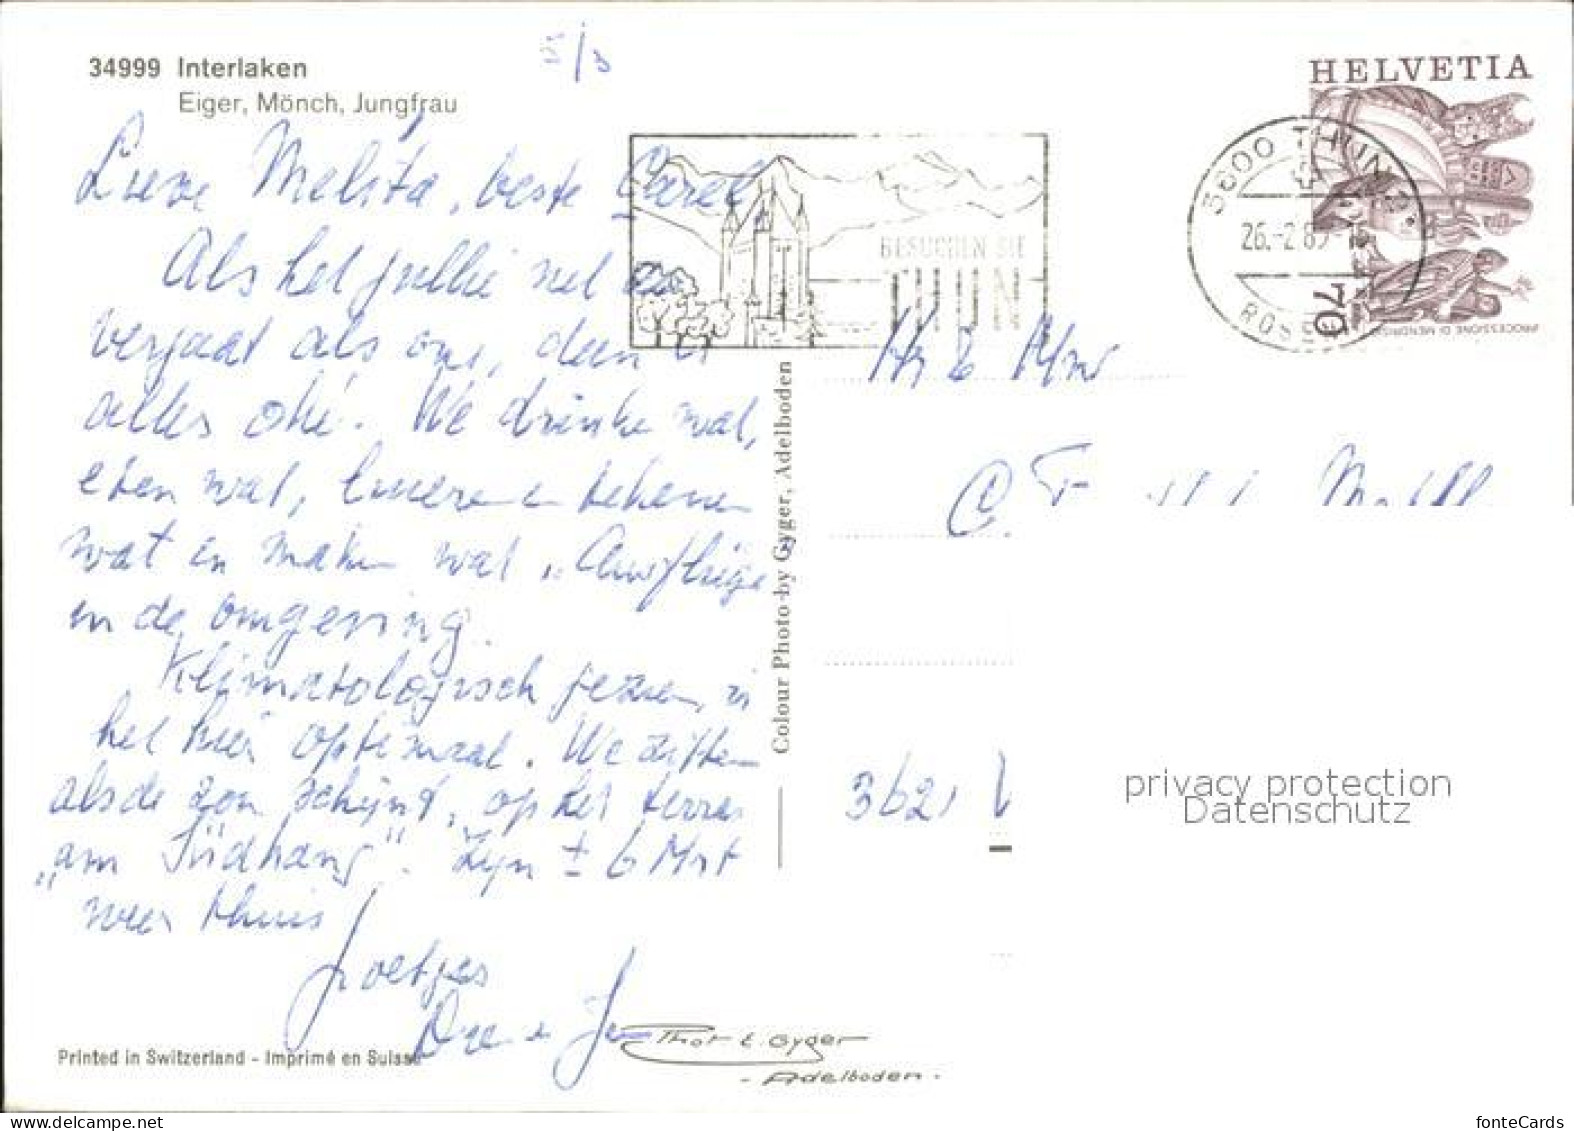 34999 Interlaken
Eiger, Mönch, Jungfrau
Lieve Melita, beste Carel
Als het jullie net zo
vergaat als ons, dan is
alles oké. We drinken wat,
eten wat, luieren en tekenen
wat en maken wat „Ausflüge
in de omgeving.
Klimatologisch gezien, is
het hier optimaal. We zitten
als de zon schijnt, op het terras
„am Südhang". Zijn ± 6 Mrt
weer thuis
Groetjes
Printed in Switzerland - Imprimé en Suisse
Thor E. Gyger
- Adelboden -
Colour Photo by Gyger, Adelboden
BESUCHEN SIE
THUN
3600 THUN
26.-2 89
HELVETIA
70
PROCESSIONE DI MENDRISIO
Hr & Mw
C.
3621
privacy protection
Datenschutz
www.delcampe.net
fonteCards